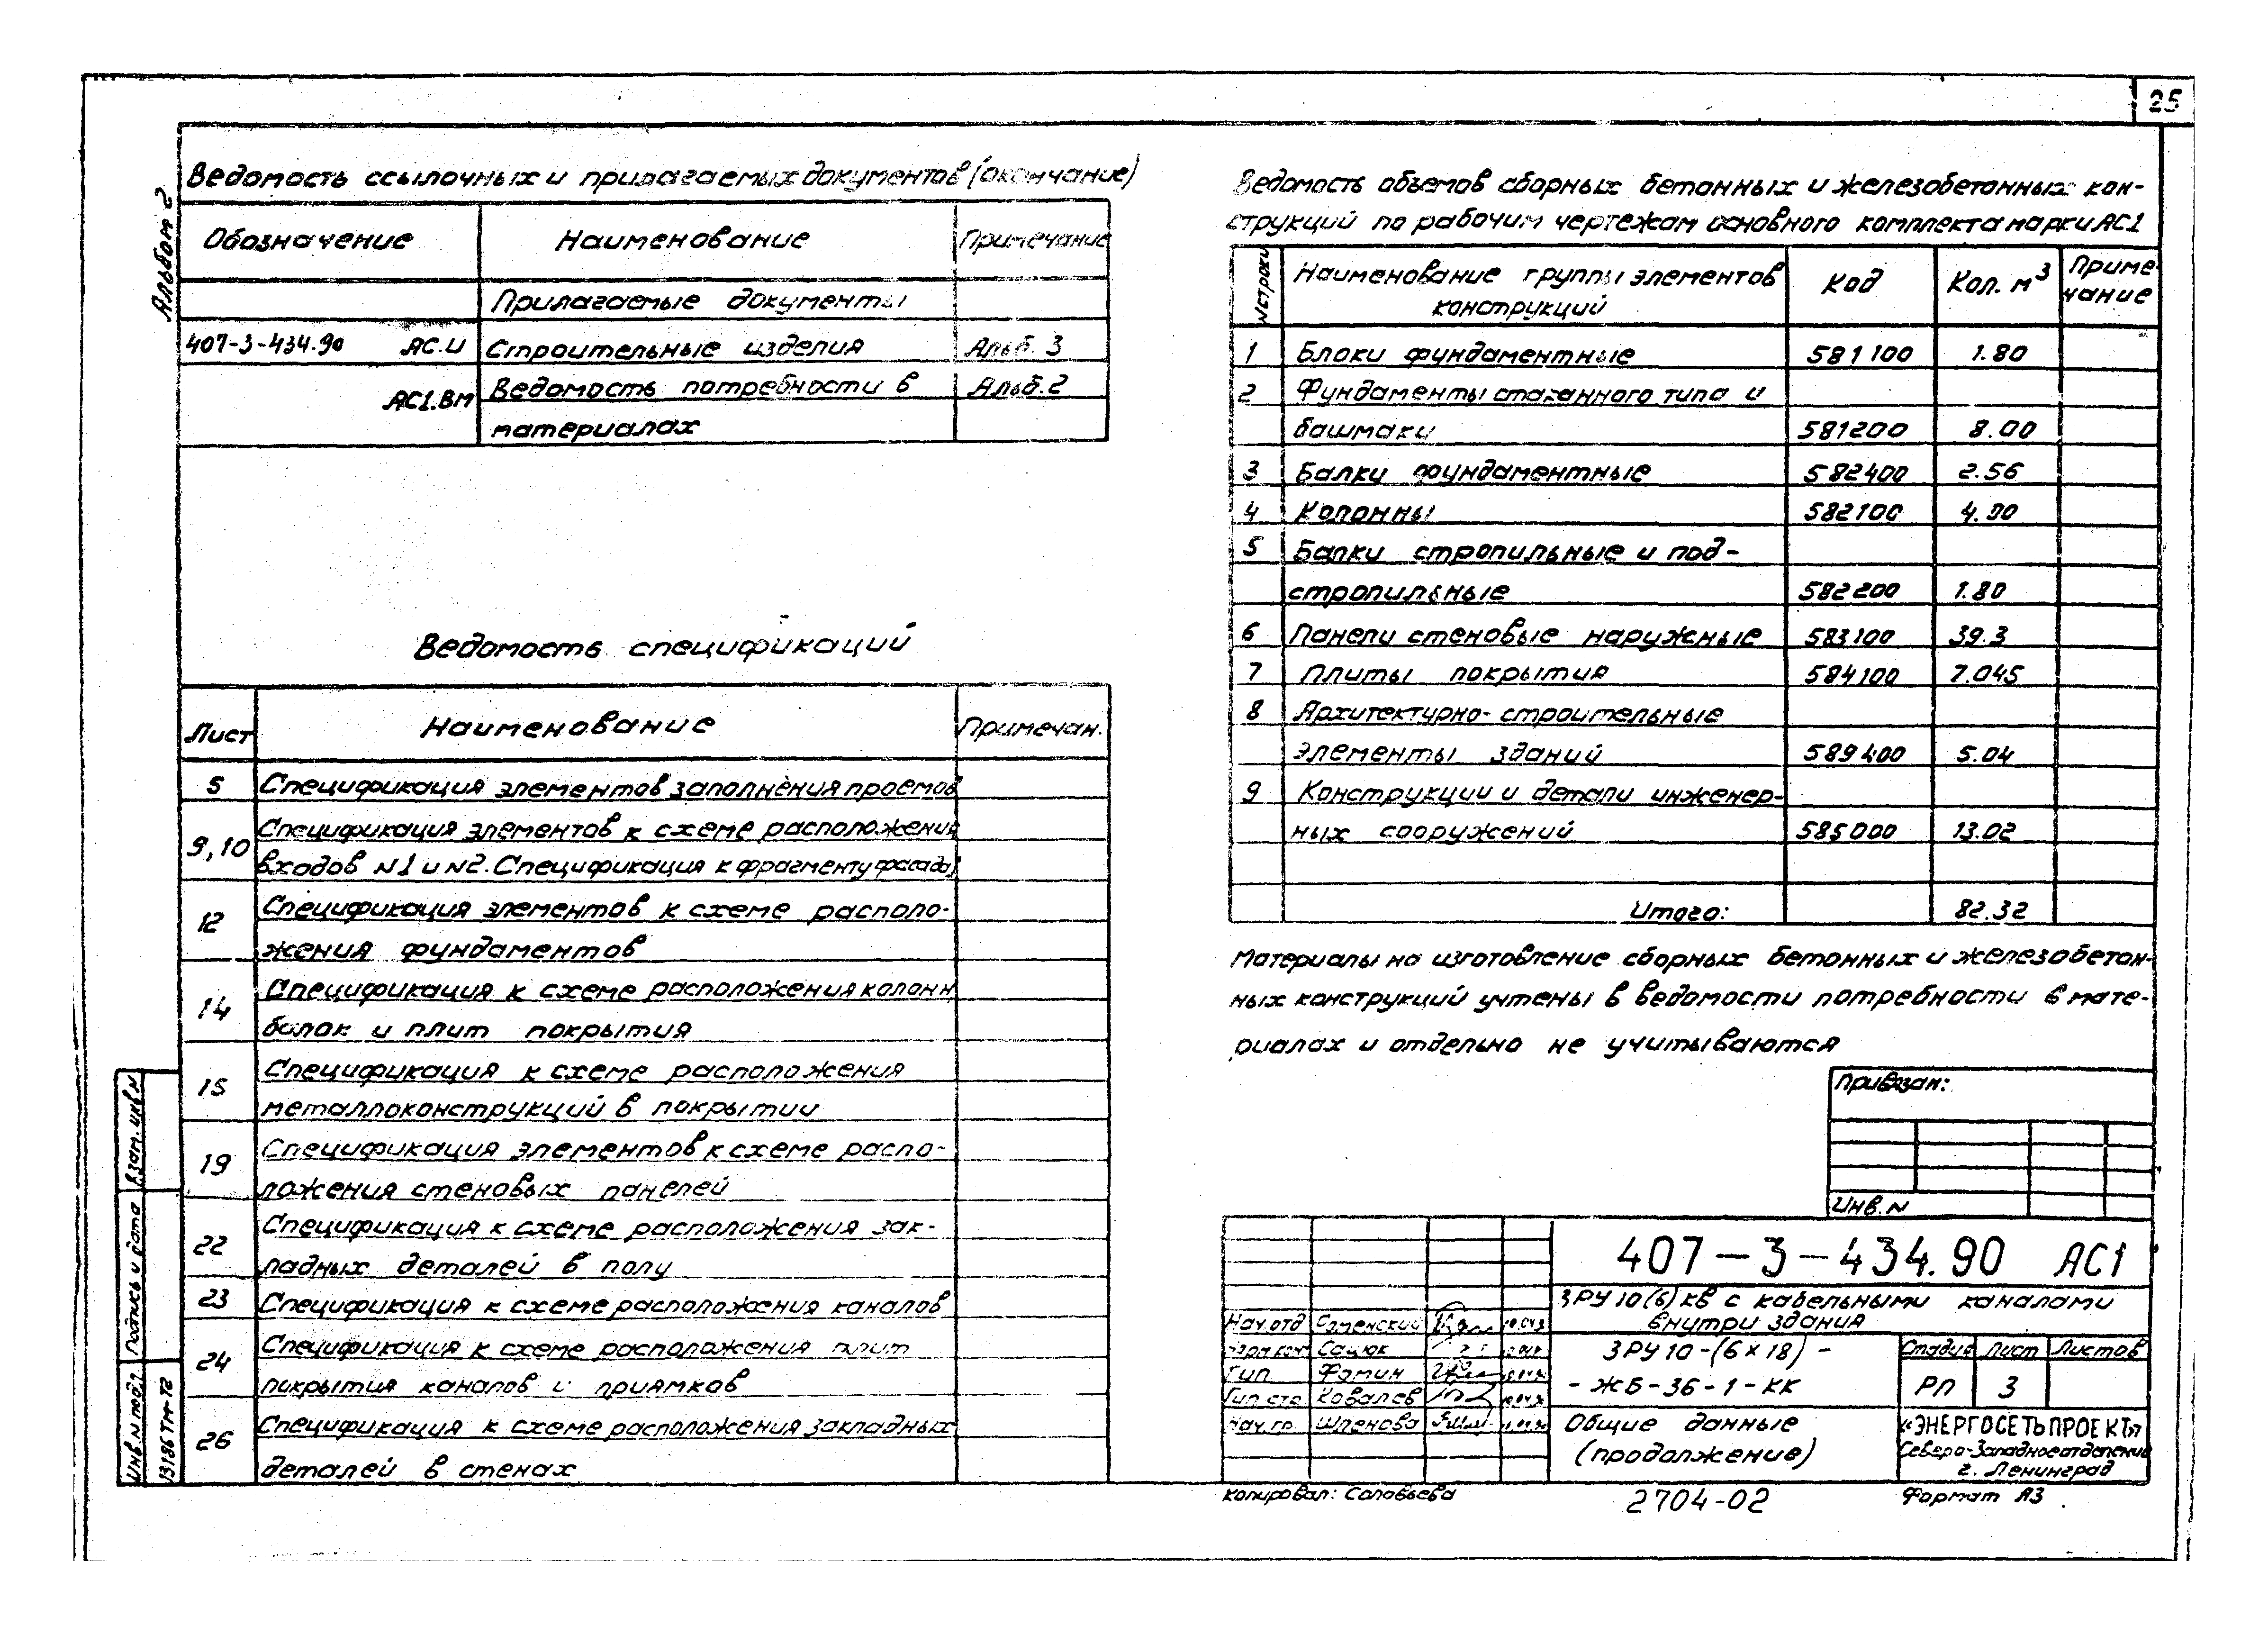 25
Альбом 2
Ведомость ссылочных и прилагаемых документов (окончание)
Обозначение Наименование Примечание
Прилагаемые документы
407-3-434.90 АС.И Строительные изделия Альб. 3
АС1.ВМ Ведомость потребности в Альб. 2
материалах
Ведомость спецификаций
Лист Наименование Примечан.
5 Спецификация элементов заполнения проемов
9,10 Спецификация элементов к схеме расположения
входов N1 и N2. Спецификация к фрагменту фасада
12 Спецификация элементов к схеме располо-
жения фундаментов
14 Спецификация к схеме расположения колонн
балок и плит покрытия
15 Спецификация к схеме расположения
металлоконструкций в покрытии
19 Спецификация элементов к схеме распо-
ложения стеновых панелей
22 Спецификация к схеме расположения зак-
ладных деталей в полу
23 Спецификация к схеме расположения каналов
24 Спецификация к схеме расположения плит
покрытия каналов и приямков
26 Спецификация к схеме расположения закладных
деталей в стенах
Ведомость объемов сборных бетонных и железобетонных кон-
струкций по рабочим чертежам основного комплекта марки АС1
N строки Наименование группы элементов конструкций Код Кол. м3 Приме-
чание
1 Блоки фундаментные 581100 1.80
2 Фундаменты стаканного типа и
башмаки 581200 8.00
3 Балки фундаментные 582400 2.56
4 Колонны 582100 4.00
5 Балки стропильные и под-
стропильные 582200 1.80
6 Панели стеновые наружные 583100 39.3
7 Плиты покрытия 584100 7.045
8 Архитектурно-строительные
элементы зданий 589400 5.04
9 Конструкции и детали инженер-
ных сооружений 585000 13.02
Итого: 82.32
Материалы на изготовление сборных бетонных и железобетон-
ных конструкций учтены в ведомости потребности в мате-
риалах и отдельно не учитываются
Привязан:
Инв. N
407-3-434.90 АС1
ЗРУ 10(6) кв с кабельными каналами
внутри здания
Нач.отд
Сацюк
Гип Фомин
Гип стр Ковалев
Нач. гр. Шленова
ЗРУ 10-(6×18)-
-ЖБ-36-1-КК
Стадия Лист Листов
РП 3
Общие данные
(продолжение)
«ЭНЕРГОСЕТЬПРОЕКТ»
Северо-Западное отделение
г. Ленинград
Копировал: Соловьева 2704-02 Формат А3
Взам. инв N
Подпись и дата
Инв. N подл. 13186ТМ-Т2